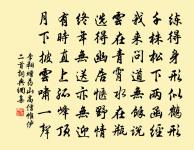 練得身形似鶴形
千株松下兩函經
我來問道無餘說
雲在青霄水在瓶
選得幽居愜野情
終年無送亦無迎
有時直上孤峰頂
月下披雲嘯一聲
李翱贈藥山高僧惟儼
二首詞典網集